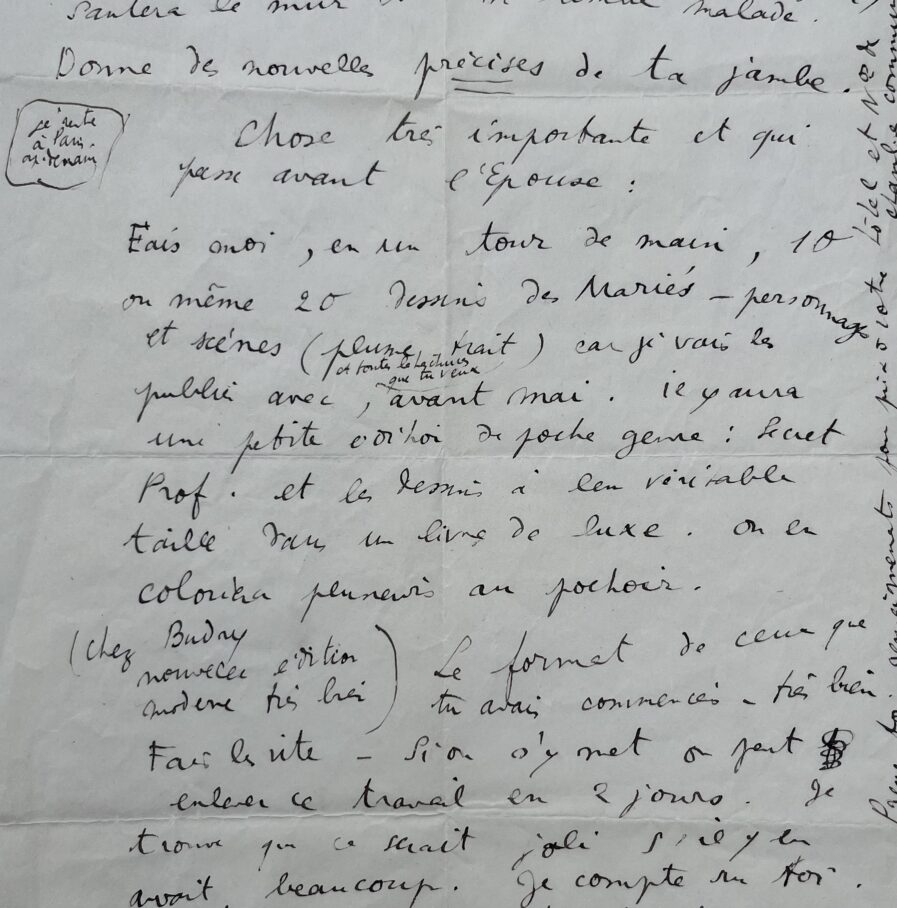 sautera le mur malade.
Donne des nouvelles précises de ta jambe.
je reste
à Paris.
Chose très importante et qui
passe avant l'Epouse :
Fais moi, en un tour de main, 10
ou même 20 dessins des Mariés – personnages
et scènes (plume, trait) car je vais les
et toutes les hachures
que tu veux
publier avec, avant mai. il y aura
une petite édition de poche genre : Secret
Prof. et les dessins à leur véritable
taille dans un livre de luxe. on en
coloriera plusieurs au pochoir.
(chez Budry
nouvelle édition
moderne très bien)
Le format de ceux que
tu avais commencés – très bien.
Fais les vite – Si on s'y met on peut
enlever ce travail en 2 jours. Je
trouve que ce serait joli s'il y en
avait beaucoup. Je compte sur toi.